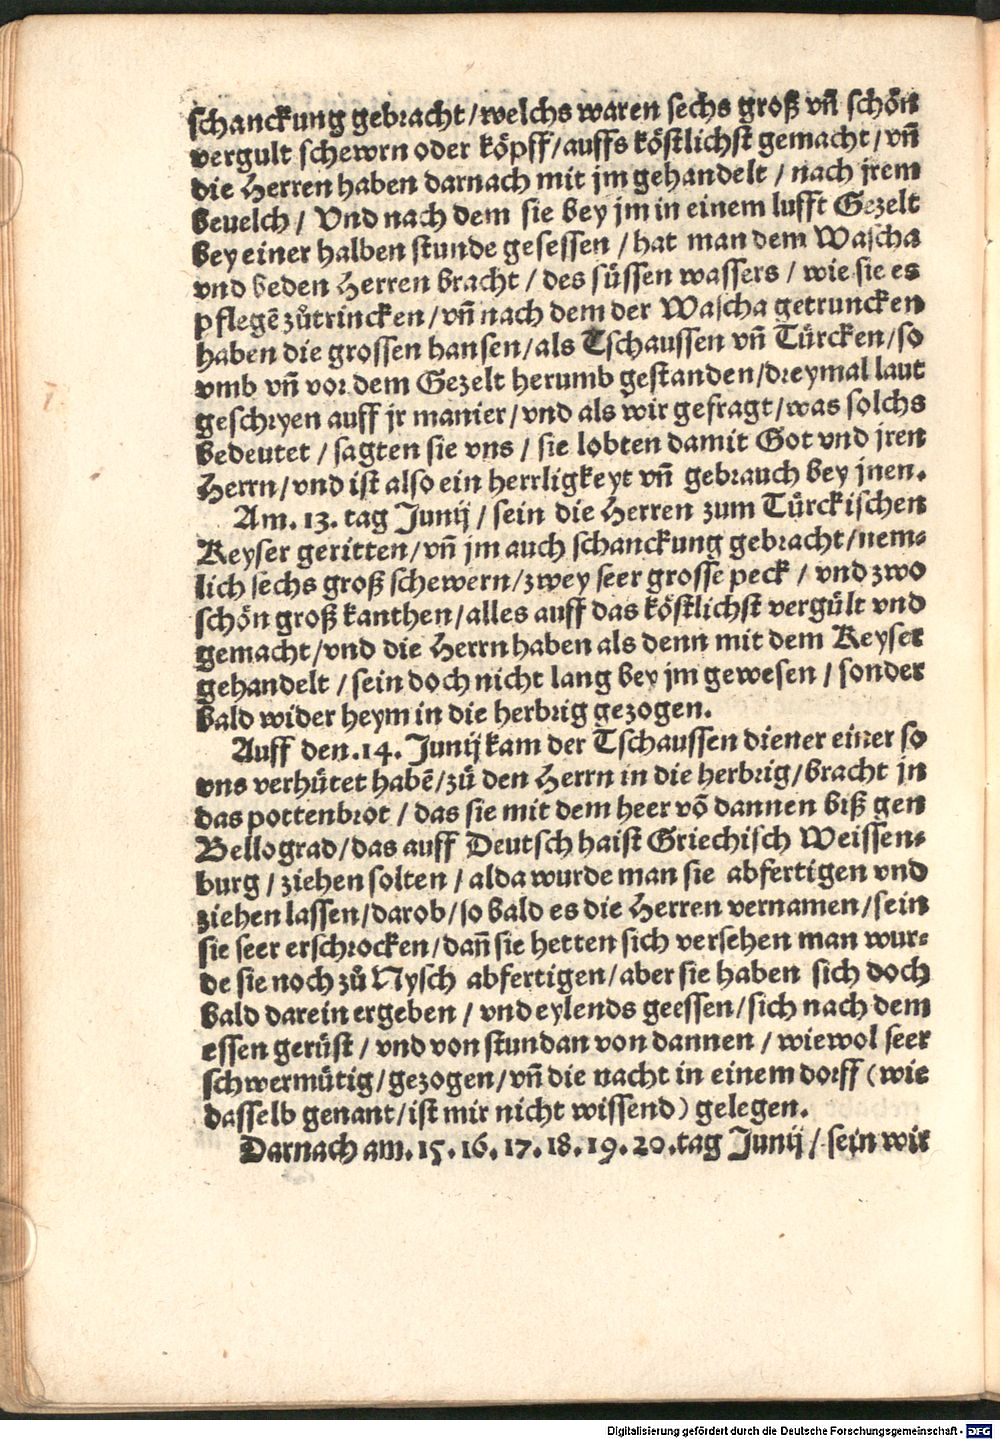 schanckung gebracht/welchs waren sechs groß vñ schön
vergult schewrn oder köpff/auffs köstlichst gemacht/vñ
die Herren haben darnach mit jm gehandelt / nach jrem
beuelch / Vnd nach dem sie bey jm in einem lufft Gezelt
bey einer halben stunde gesessen / hat man dem Wascha
vnd beden Herren bracht / des süssen wassers / wie sie es
pflegē zůtrincken/vñ nach dem der Wascha getruncken
haben die grossen hansen/als Tschaussen vñ Türcken/so
vmb vñ vor dem Gezelt herumb gestanden/dreymal laut
geschryen auff jr manier/vnd als wir gefragt/was solchs
bedeutet / sagten sie vns / sie lobten damit Got vnd jren
Herrn/vnd ist also ein herrligkeyt vñ gebrauch bey jnen.
Am. 13. tag Junij / sein die Herren zum Türckischen
Keyser geritten/vñ jm auch schanckung gebracht/nem⸗
lich sechs groß schewern/zwey seer grosse peck / vnd zwo
schön groß kanthen/alles auff das köstlichst vergült vnd
gemacht/vnd die Herrn haben als denn mit dem Keyser
gehandelt / sein doch nicht lang bey jm gewesen / sonder
bald wider heym in die herbrig gezogen.
Auff den. 14. Junij kam der Tschaussen diener einer so
vns verhütet habē/zů den Herrn in die herbrig/bracht jn
das pottenbrot / das sie mit dem heer vō dannen biß gen
Bellograd/das auff Deutsch haist Griechisch Weissen⸗
burg / ziehen solten / alda wurde man sie abfertigen vnd
ziehen lassen/darob/so bald es die Herren vernamen/sein
sie seer erschrocken/dañ sie hetten sich versehen man wur⸗
de sie noch zů Nysch abfertigen/aber sie haben sich doch
bald darein ergeben / vnd eylends geessen/sich nach dem
essen gerüst / vnd von stundan von dannen / wiewol seer
schwermütig/gezogen/vñ die nacht in einem dorff (wie
dasselb genant/ist mir nicht wissend) gelegen.
Darnach am. 15. 16. 17. 18. 19. 20. tag Junij / sein wir
Digitalisierung gefördert durch die Deutsche Forschungsgemeinschaft - DFG